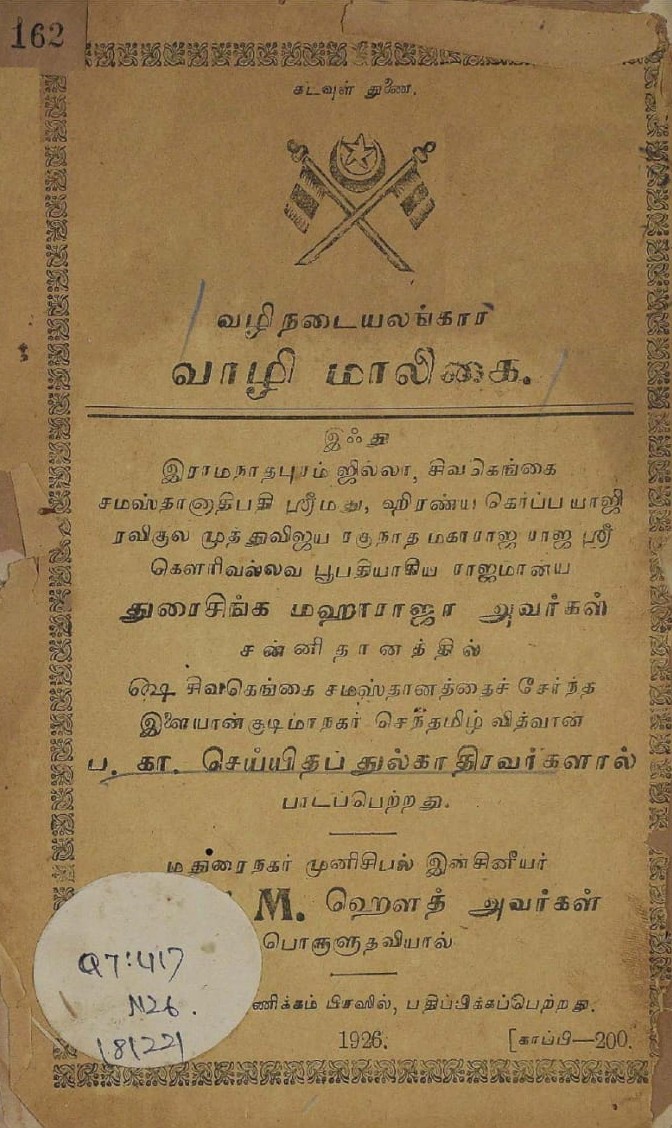 162
கடவுள் துணை.
வழிநடையலங்கார
வாழி மாலிகை.
இஃது
இராமநாதபுரம் ஜில்லா, சிவகெங்கை
சமஸ்தானாதிபதி ஸ்ரீமது, ஹிரண்ய கெர்ப்பயாஜி
ரவிகுல முத்துவிஜய ரகுநாத மகாராஜ ராஜ ஸ்ரீ
கௌரிவல்லவ பூபதியாகிய ராஜமான்ய
துரைசிங்க மஹாராஜா அவர்கள்
சன்னிதானத்தில்
௸ சிவகெங்கை சமஸ்தானத்தைச் சேர்ந்த
இளையான்குடிமாநகர் செந்தமிழ் வித்வான்
ப. கா. செய்யிதப்துல்காதிரவர்களால்
பாடப்பெற்றது.
மதுரைநகர் முனிசிபல் இன்சினீயர்
M. ஹௌத் அவர்கள்
பொருளுதவியால்
ணிக்கம் பிரஸில், பதிப்பிக்கப்பெற்றது.
1926. [காப்பி—200.
Q7:417
N26.
18122